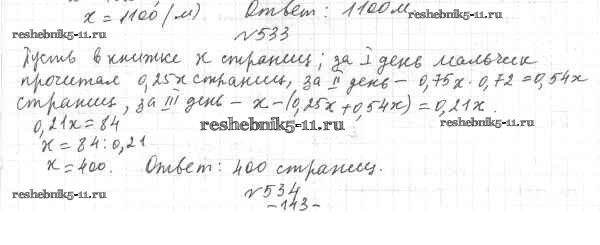 x = 1100 (м) Ответ: 1100м
reshebnik5-11.ru
reshebnik5-11.ru
№533
Пусть в книжке x страниц; за I день мальчик
прочитал 0,25x страниц, за II день – 0,75x · 0,72 = 0,54x
страниц, за III день – x – (0,25x + 0,54x) = 0,21x.
0,21x = 84
reshebnik5-11.ru
reshebnik5-11.ru
x = 84 : 0,21
x = 400. Ответ: 400 страниц.
reshebnik5-11.ru
№534
–143–